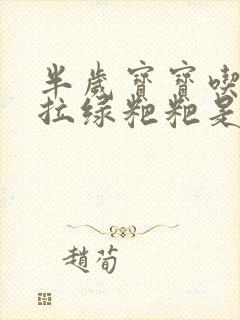 半歲寶寶喫
拉綠粑粑是
趙荀